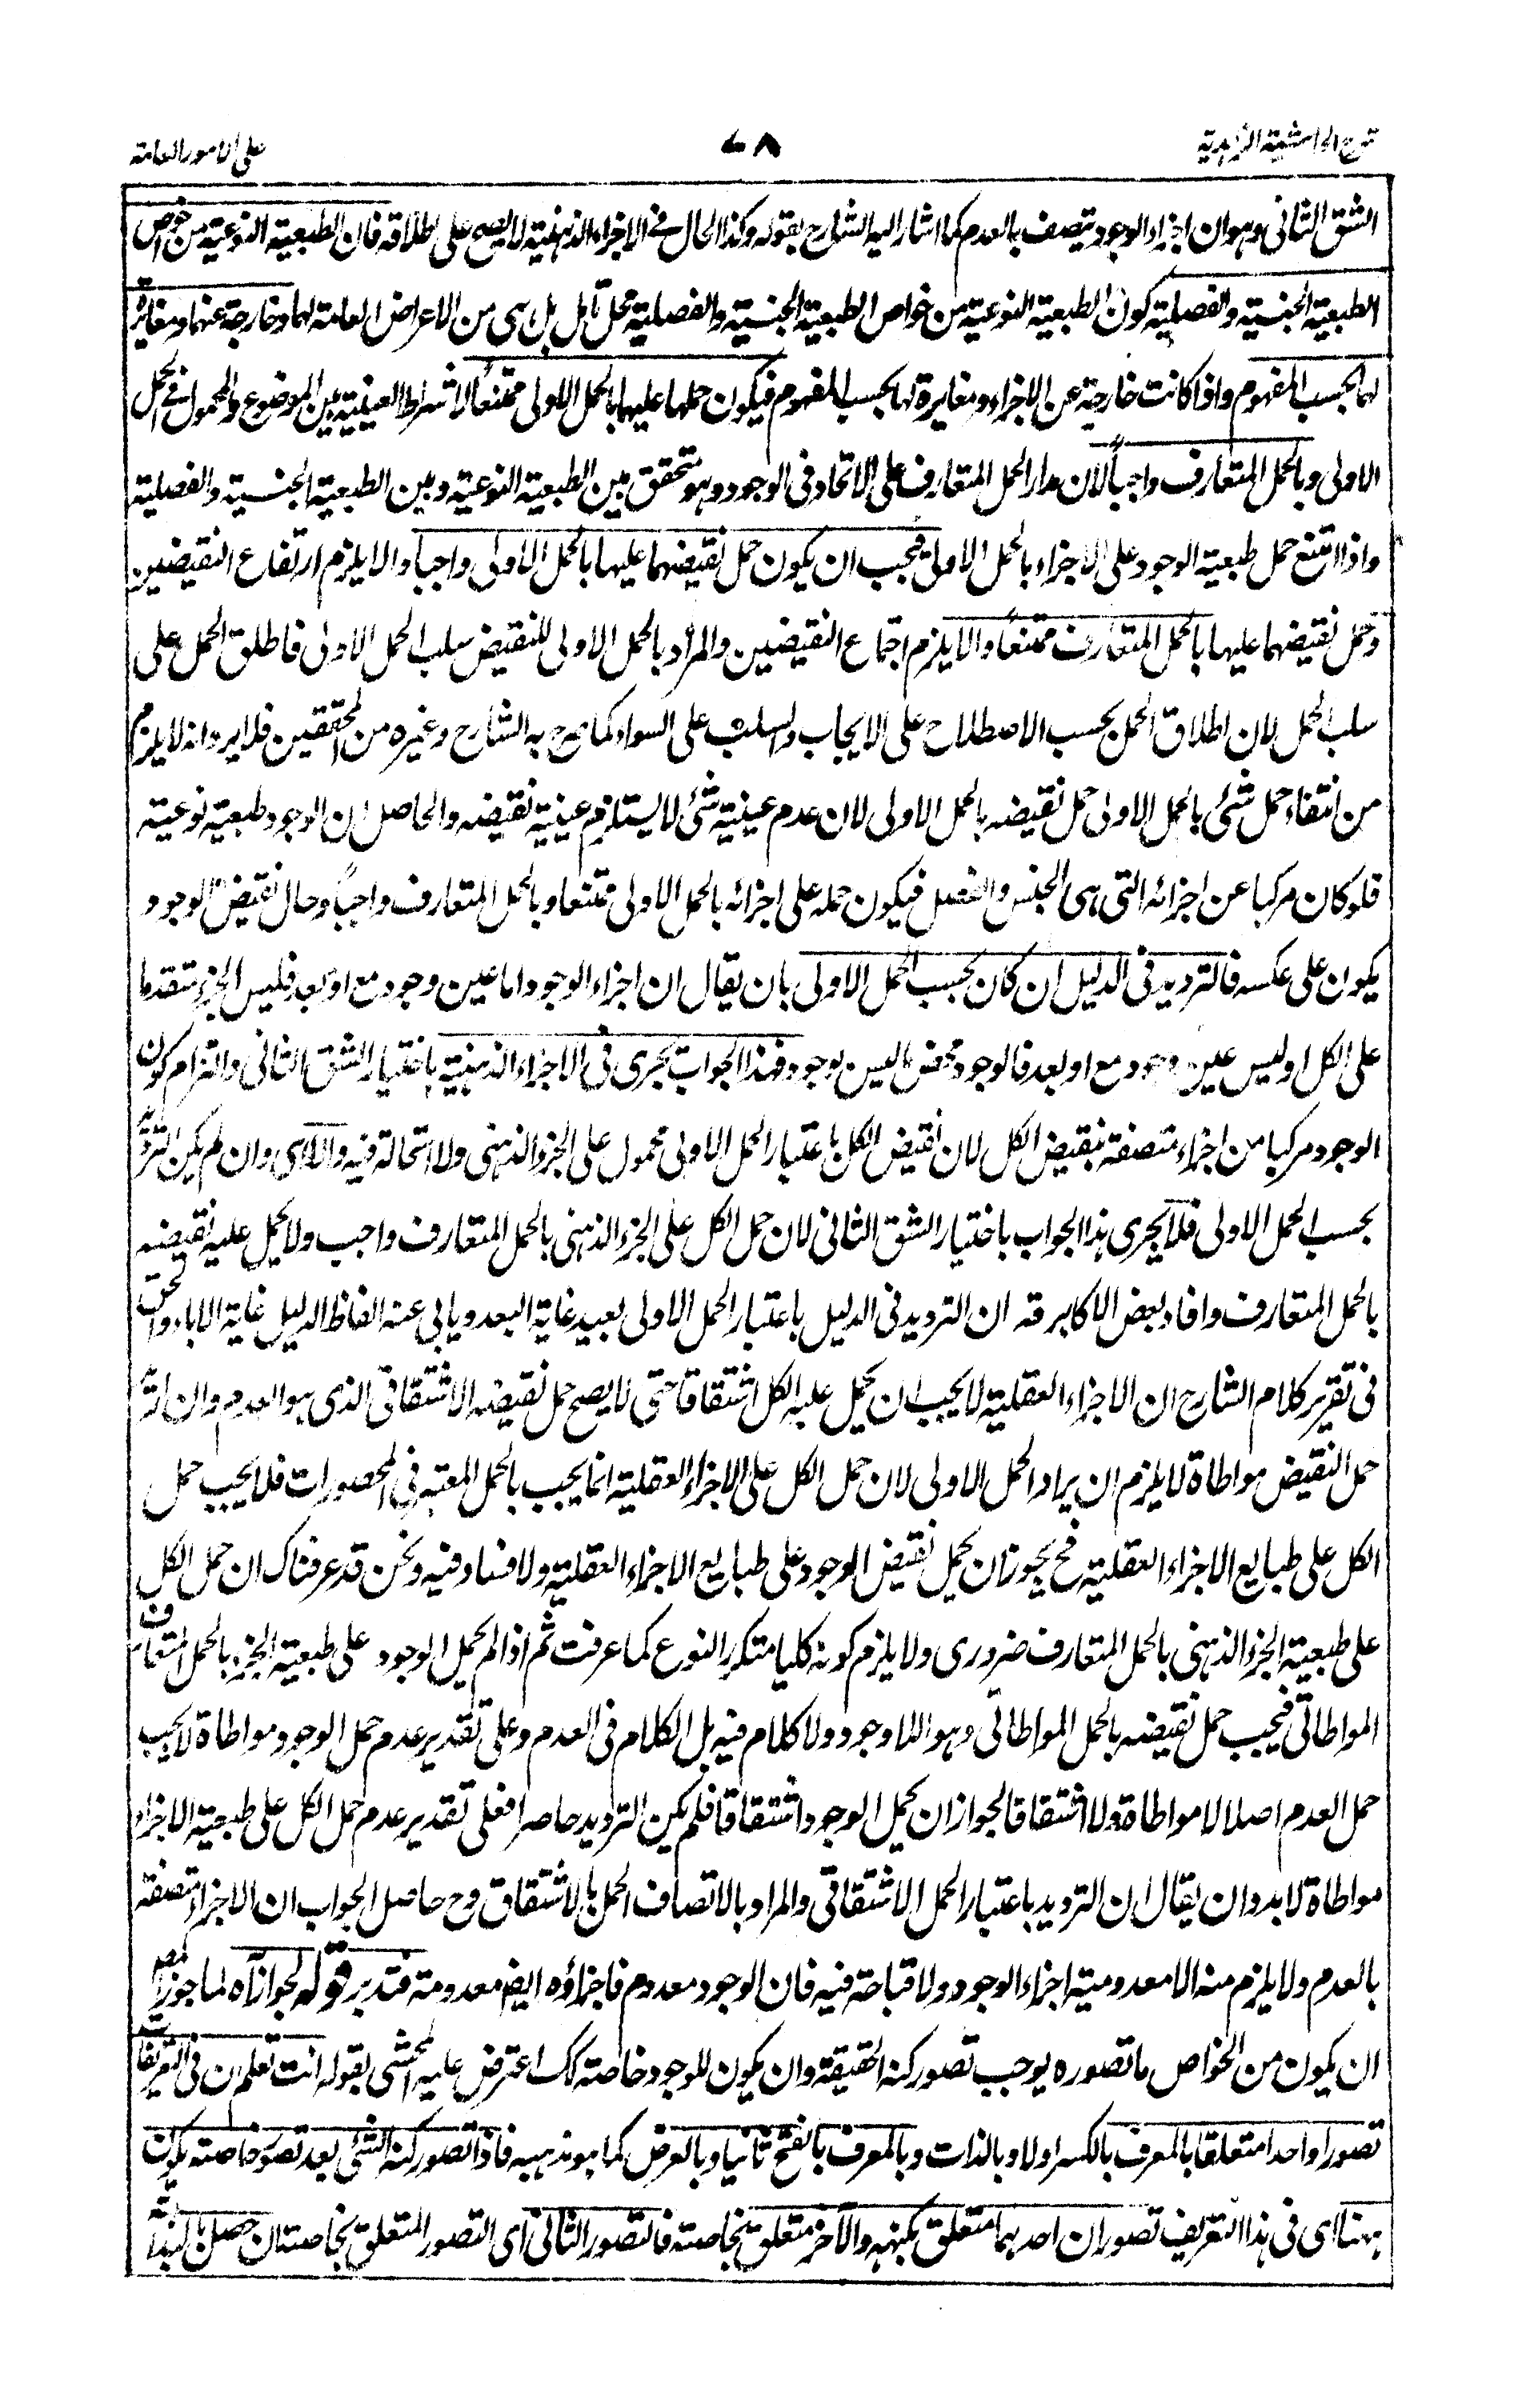 شرح الحاشية الزاهدية
٧٨
على الامور العامة
الشق الثانى وهو ان اجزاء الوجود تتصف بالعدم كما اشار اليه الشارح بقوله وكذا الحال فى الاجزاء الذهنية لا يصح على اطلاقه فان الطبعية النوعية من خواص
الطبعية الجنسية والفصلية كون الطبعية النوعية من خواص الطبعية الجنسية والفصلية محل تامل بل هى من الاعراض العامة لهما وخارجة عنهما ومغائرة
لهما بحسب المفهوم واذا كانت خارجة عن الاجزاء ومغايرة لها بحسب المفهوم فيكون حملها عليها بالحمل الاولى ممتنعًا لاشتراط العينية بين الموضوع والمحمول فى الحمل
الاولى وبالحمل المتعارف واجبًا لان مدار الحمل المتعارف على الاتحاد فى الوجود وهو متحقق بين الطبعية النوعية وبين الطبعية الجنسية والفصلية
واذا امتنع حمل طبعية الوجود على الاجزاء بالحمل الاولى فيجب ان يكون حمل نقيضهما عليها بالحمل الاولى واجبا والا يلزم ارتفاع النقيضين
وحمل نقيضهما عليها بالحمل المتعارف ممتنعًا والا يلزم اجتماع النقيضين والمراد بالحمل الاولى للنقيض سلب الحمل الاولى فاطلق الحمل على
سلب الحمل لان اطلاق الحمل بحسب الاصطلاح على الايجاب والسلب على السواء كما صرح به الشارح وغيره من المحققين فلا يرد انه لا يلزم
من انتفاء حمل شئى بالحمل الاولى حمل نقيضه بالحمل الاولى لان عدم عينية شئى لا يستلزم عينية نقيضه والحاصل ان الوجود طبعية نوعية
فلو كان مركبا عن اجزائه التى هى الجنس والفصل فيكون حمله على اجزائه بالحمل الاولى ممتنعا وبالحمل المتعارف واجبًا وحال نقيض الوجود
يكون على عكسه فالترديد فى الدليل ان كان بحسب الحمل الاولى بان يقال ان اجزاء الوجود اما عين وجود مع او بعد فليس الجزء متقدما
على الكل او ليس عين وجود مع او بعد فالوجود محض ما ليس بوجود فهذا الجواب يجرى فى الاجزاء الذهنية باختيار الشق الثانى والتزام كون
الوجود مركبا من اجزاء متصفة بنقيض الكل لان نقيض الكل باعتبار الحمل الاولى محمول على الجزء الذهنى ولا استحالة فيه والا اى وان لم يكن الترديد
بحسب الحمل الاولى فلا يجرى هذا الجواب باختيار الشق الثانى لان حمل الكل على الجزء الذهنى بالحمل المتعارف واجب ولا يحمل عليه نقيضه
بالحمل المتعارف وافاد بعض الاكابر قه ان الترديد فى الدليل باعتبار الحمل الاولى بعيد غاية البعد ويابى عنه الفاظ الدليل غاية الاباء والحق
فى تقرير كلام الشارح ان الاجزاء العقلية لا يجب ان يحمل عليه الكل اشتقاقا حتى لا يصح حمل نقيضه الاشتقاقى الذى هو العدم وان اريد
حمل النقيض مواطاة لا يلزم ان يراد الحمل الاولى لان حمل الكل على الاجزاء العقلية انما يجب بالحمل المعتبر فى المحصورات فلا يجب حمل
الكل على طبايع الاجزاء العقلية فح يجوز ان يحمل نقيض الوجود على طبايع الاجزاء العقلية ولا فساد فيه ونحن قد عرفناك ان حمل الكل
على طبعية الجزء الذهنى بالحمل المتعارف ضرورى ولا يلزم كونه كليا متكرر النوع كما عرفت ثم اذا لم يحمل الوجود على طبعية الجزء بالحمل المتعارف
المواطاتى فيجب حمل نقيضه بالحمل المواطاتى وهو اللاوجود ولا كلام فيه بل الكلام فى العدم وعلى تقدير عدم حمل الوجود مواطاة لا يجب
حمل العدم اصلا لا مواطاة ولا اشتقاقا لجواز ان يحمل الوجود اشتقاقا فلم يكن الترديد حاصرا فعلى تقدير عدم حمل الكل على طبعية الاجزاء
مواطاة لا بد وان يقال ان الترديد باعتبار الحمل الاشتقاقى والمراد بالاتصاف الحمل بالاشتقاق وح حاصل الجواب ان الاجزاء متصفة
بالعدم ولا يلزم منه الا معدومية اجزاء الوجود ولا قباحة فيه فان الوجود معدوم فاجزاؤه ايضا معدومة فتدبر قوله لجواز آه لما جوز المصـ
ان يكون من الخواص ما تصوره يوجب تصور كنه الحقيقة وان يكون للوجود خاصة كك اعترض عليه المحشى بقوله انت تعلم ان فى التعريفات
تصورا واحدا متعلقا بالمعرف بالكسر اولا وبالذات وبالمعرف بالفتح ثانيا وبالعرض كما هو مذهبه فاذا تصور كنه الشئى بعد تصور خاصته يكون
ههنا اى فى هذا التعريف تصوران احدهما متعلق بكنهه والآخر متعلق بخاصته فالتصور الثانى اى التصور المتعلق بخاصته ان حصل